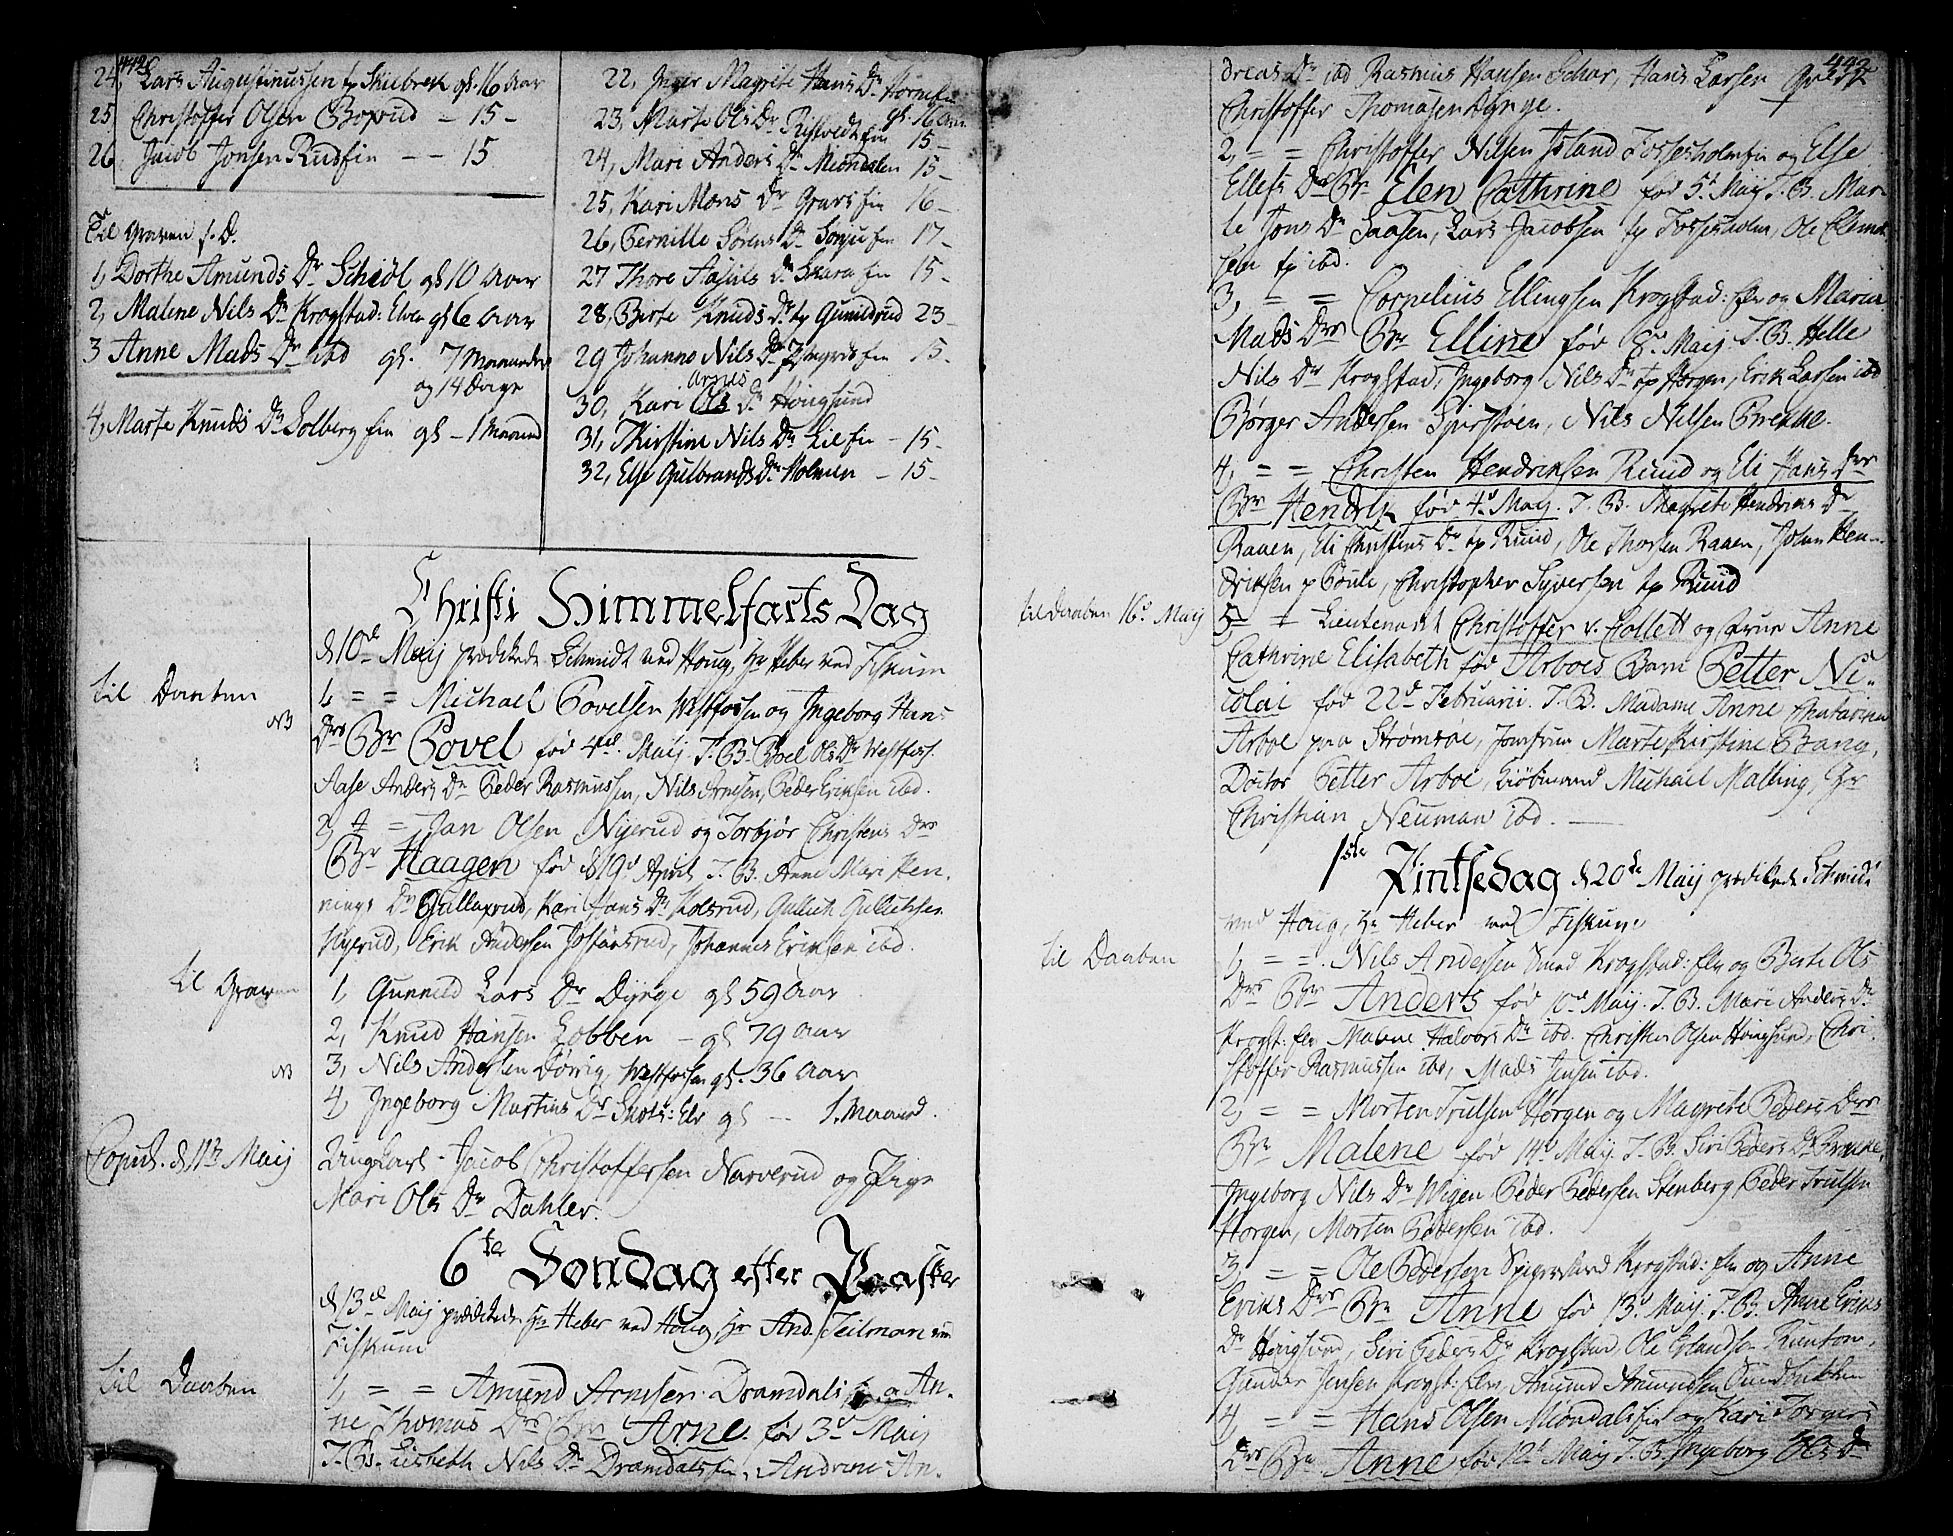 442
24, Lars Augustinussen tp Skiebrek gl. 16 Aar
25 Christoffer Olsen Boxrud – 15 –
26 Jacob Jonsen Rudfin – – 15
Til Graven s. D.
1, Dorthe Amunds Dr Schiøl gl 10 Aar
2, Malene Nils Dr Krogstad: Elven gl 6 Aar
3 Anne Mads Dr ibd gl. 7 Maaneder
og 14 Dage
4, Marte Knuds Dr Solberg fin gl – 1 Maaned
22, Inger Magrete Hans Dr Hornefin
gl. 16 Aar
23, Marte Ols Dr fin 15 –
24, Mari Anders Dr Miøndalen 15 –
25, Kari Mons Dr Gravs fin 16 –
26, Pernille Sørens Dr fin 17 –
27 Thore Dr Skara fin 15 –
28, Birte Knuds Dr tp Gunildrud 23 –
29 Johanne Nils Dr fin 15 –
30, Kari Arnes Dr Hougsund
31, Kirstine Nils Dr Lilfin – 15 –
32, Else Gulbrands Dr Holmen – 15 –
Christi Himmelfarts Dag
d 10de Maij prædikede Schmidt ved Houg, Hr Heber ved Fiskum
til Daaben
1, = = Michael Povelsen Westfossen og Ingeborg Hans
NB
Drs Br Povel fød Maij T. B. Ols Dr Westfoss.
Aase Anders Dr Peder Rasmussen, Nils Arnesen, Peder Eriksen ibd.
2, = = Jan Olsen Nyerud og Torbjør Christens Drs
Br Haagen fød d 19d April T. B. Anne Mari Hen-
nings Dr Gullaxrud, Kari Hans Dr Kolsrud, Gullich Gullichsen
Nyerud, Erik Andersen, Johannes Eriksen ibd.
til Graven
1, Gunnild Lars Dr Dynge gl 59 Aar
2, Knud Hansen Lobben – gl 79 Aar
NB
3, Nils Andersen Døvig, Westfossen gl. 36 Aar
4, Ingeborg Martins Dr Skots: Elv gl – – 1. Maaned.
Copul. d 11te Maij
Ung Karl Jacob Christoffersen Narverud og Pige
Mari Ols Dr Dahler.
6te Søndag efter Paaske
d 13de Maij prædikede Hr Heber ved Houg Hr And. Teilman ved
Fiskum
til Daaben
1, = = Amund Arnesen Dramdals fin og An-
ne Thomas Drs Br Arne. fød 3d Maij
T. B. Lisbeth Nils Dr Dramdalsfin, Andrine An-
442
dreas Dr ibd Rasmus Hansen Schar, Hans Larsen
Christoffer Thomasen Dynge.
2, = = Christoffer Nilsen Island Fossesholmfin og Else
Ellefs Drs Br Elen Cathrine fød 5d Maij T. B. Mar-
te Jons Dr Saasen, Lars Jacobsen tp Fossesholm, Ole Clemet-
sen tp ibd.
3, = = Cornelius Ellingsen Krogstad: Elv og Maria
Mads Drs Br Elline fød 8d Maij. T. B. Helle
Nils Dr Krogstad, Ingeborg Nils Dr tp Horgen, Erik Larsen ibd
Børger Andersen, Nils Nilsen Brekke.
4, = = Christen Hendriksen Ruud og Eli Hans Drs
Br Hendrik fød 4d Maij. T. B. Magrete Hendriks Dr
Raaen, Eli Christens Dr tp Ruud, Ole Thorsen Raaen, Johan Hen-
driksen, Christopher Syversen tp Ruud
til Daaben 16d Maij
5, = Lieutenant Christoffer v. Collett og Frue Anne
Cathrine Elisabeth fød Arboes Barn Petter Ni-
colai fød 22d Februarii. T. B. Madame Anne Chatarina
Arboe paa Strømsøe, Jomfrue Marte Kirstine Bang,
Doctor Petter Arboe, Kiøbmand Michael Malling, Hr
Christian Neuman ibd. –
1ste Pintsedag d 20de Maij prædikede Schmidt
ved Houg, Hr Heber ved Fiskum
til Daaben
1, = = Nils Andersen Smed Krogstad: Elv og Berte Ols
Drs Br Anders fød 10d Maij. T. B. Mari Anders Dr
Krogst: Elv, Malene Halvors Dr ibd. Christen Olsen Hougsund, Chri-
stoffer Rasmussen ibd, Mads Jensen ibd.
2, = = Morten Trulsen Horgen og Magrete Peders Drs
Br Malene fød 14d Maij. T. B. Siri Peders Dr Brekke,
Ingeborg Nils Dr Wigen Peder Pedersen Stenberg, Peder Trulsen
Horgen, Morten Pedersen ibd.
3, = = Ole Pedersen Krogstad: Elv og Anne
Eriks Drs Br Anne fød 13d Maij. T. B. Anne Eriks
Dr Hougsund, Siri Peders Dr Krogstad, Ole Erlandsen
Gunder Jensen Krogst: Elv, Amund Amundsen
4, = = Hans Olsen Miøndalsfin og Kari Torgers
Drs Br Anne fød 12d Maij T. B. Ingeborg Ols Dr